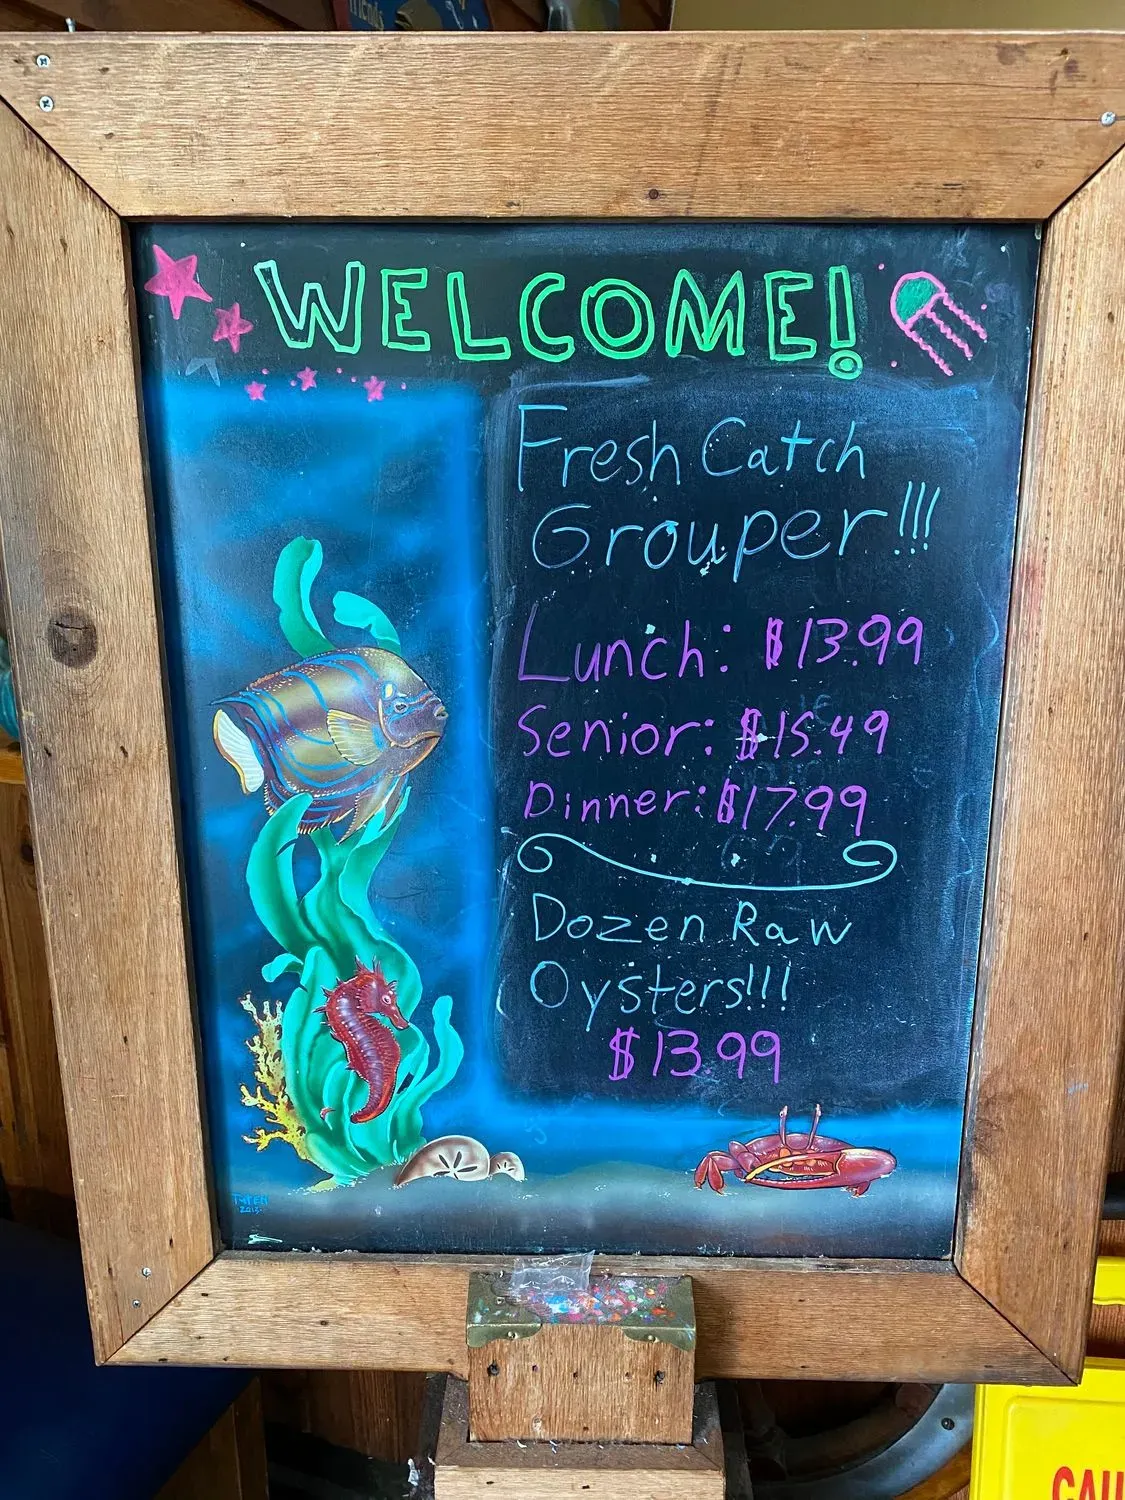 friends
WELCOME!
Fresh Catch
Grouper!!!
Lunch: $13.99
Senior: $15.49
Dinner: $17.99
Dozen Raw
Oysters!!!
$13.99
2013
CAU